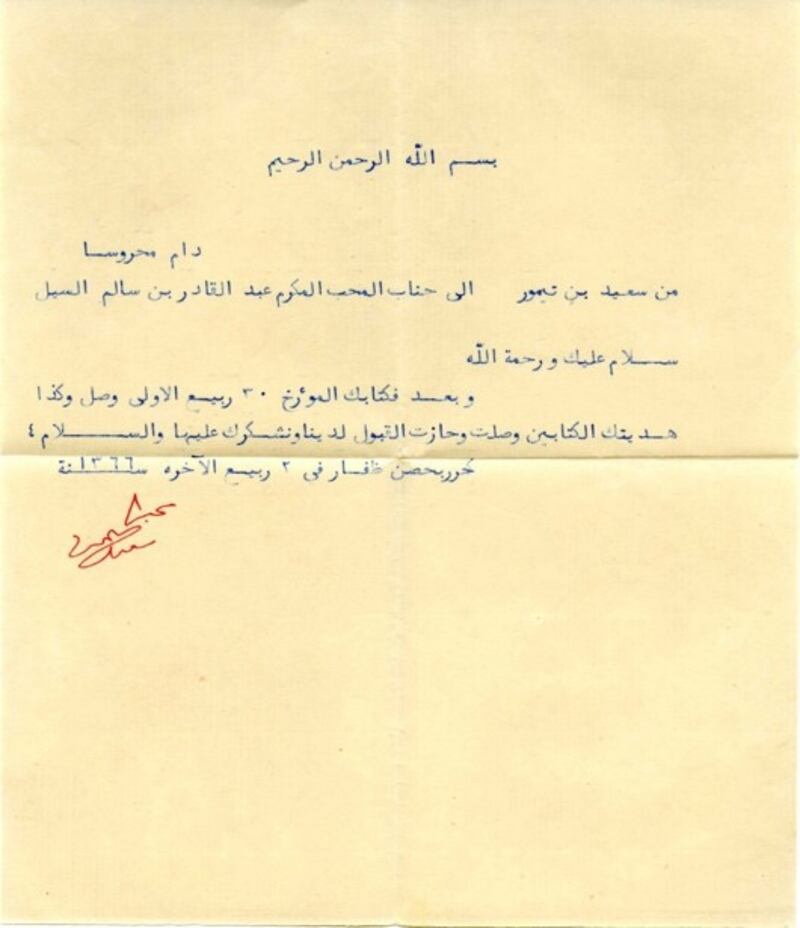 بسم الله الرحمن الرحيم
دام محروسا
من سعيد بن تيمور الى جناب المحب المكرم عبد القادر بن سالم السيل
سلام عليك ورحمة الله
وبعد فكتابك المؤرخ ٣٠ ربيع الاولى وصل وكذا
هديتك الكتابين وصلت وحازت القبول لدينا ونشكرك عليها والسلام ٤
حرر بحصن ظفار فى ٢ ربيع الآخره سنة ١٣٦٦